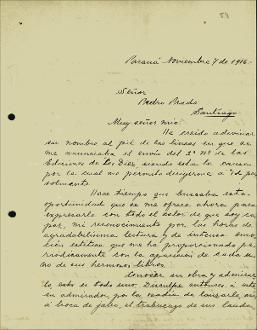 Paraná Noviembre 7 de 1916.
Señor
Pedro Prado
Santiago
Muy señor mio:
Ha creido adivinar
su nombre al pié de las líneas en que se
me anunciaba el envío del 2º Nº de las
Ediciones de Los Diez, siendo esta la causa
por la cual me permito dirigirme a Vd. per
sonalmente.
Hace tiempo que buscaba esta
oportunidad que se me ofrece ahora para
expresarle con todo el calor de que soy ca
paz, mi reconocimiento por las horas de
agradabilísima lectura y de intensa emo
ción estética que me ha proporcionado pe
riodicamente con la aparición de cada u
no de sus hermosos libros.
Conocer su obra y admirar
la, esto es todo uno. Disculpe entonces, a este
su admirador, por la
a boca de jarro, el trabucazo de sus